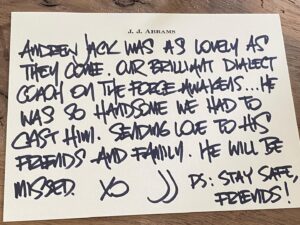 J. J. ABRAMS
ANDREW JACK WAS AS LOVELY AS
THEY COME. OUR BRILLIANT DIALECT
COACH ON THE FORCE AWAKENS... HE
WAS SO HANDSOME WE HAD TO
CAST HIM. SENDING LOVE TO HIS
FRIENDS AND FAMILY. HE WILL BE
MISSED. XO JJ PS: STAY SAFE,
FRIENDS!